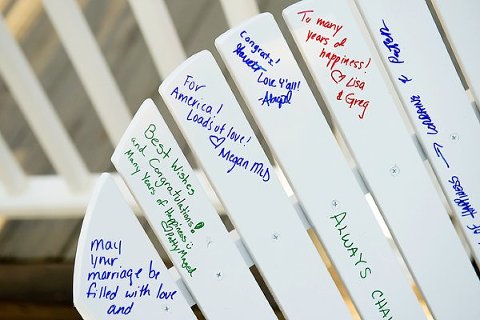 may
your
marriage be
filled with love
and
Best Wishes
and Congratulations!
Many Years of Happiness
For
America!
Loads of love!
♡ Megan McD
Congratz!
Love Y'all!
To many
years of
happiness!
♡ Lisa
& Greg
ALWAYS
HAPPINESS